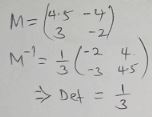 M = (4.5 -4
3 -2)
M⁻¹ = 1/3 (-2 4
-3 4.5)
⇒ Det = 1/3